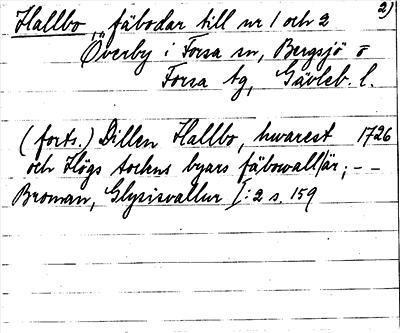 Hallbo, fäbodar till nr 1 och 2 2)
Överby i Forsa sn, Bergsjö o
Forsa tg, Gävleb. l.
(forts.) Dillen Hallbo, hwarest 1726
och Högs sockns byars fäbowall/är; – –
Broman, Glysisvallur I:2 s. 159